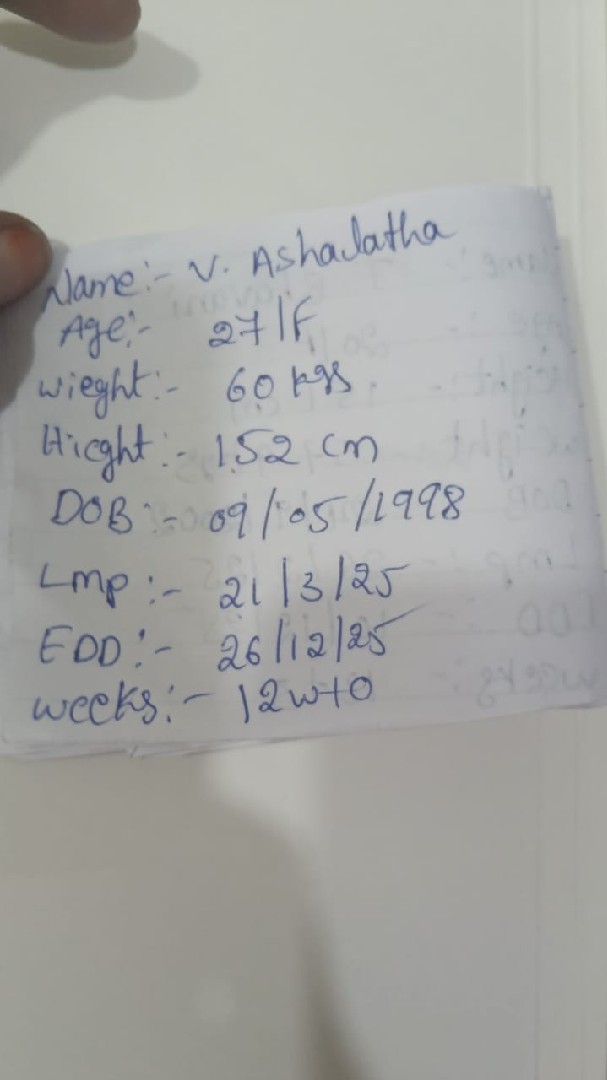 Name:- V. Ashalatha
Age:- 27/F
wieght:- 60 kgs
Hieght:- 152 cm
DOB:- 09/05/1998
Lmp:- 21/3/25
EDD:- 26/12/25
weeks:- 12w+0